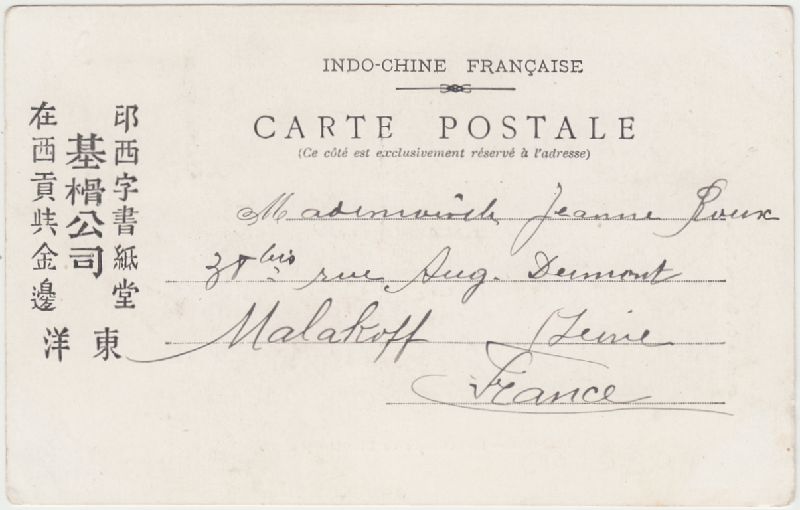 INDO-CHINE FRANÇAISE
CARTE POSTALE
(Ce côté est exclusivement réservé à l'adresse)
印西字書紙堂
基榾公司
在西貢共金邊
東洋
Mademoiselle Jeanne Roux
bis rue Aug. Dumont
Malakoff Seine
France